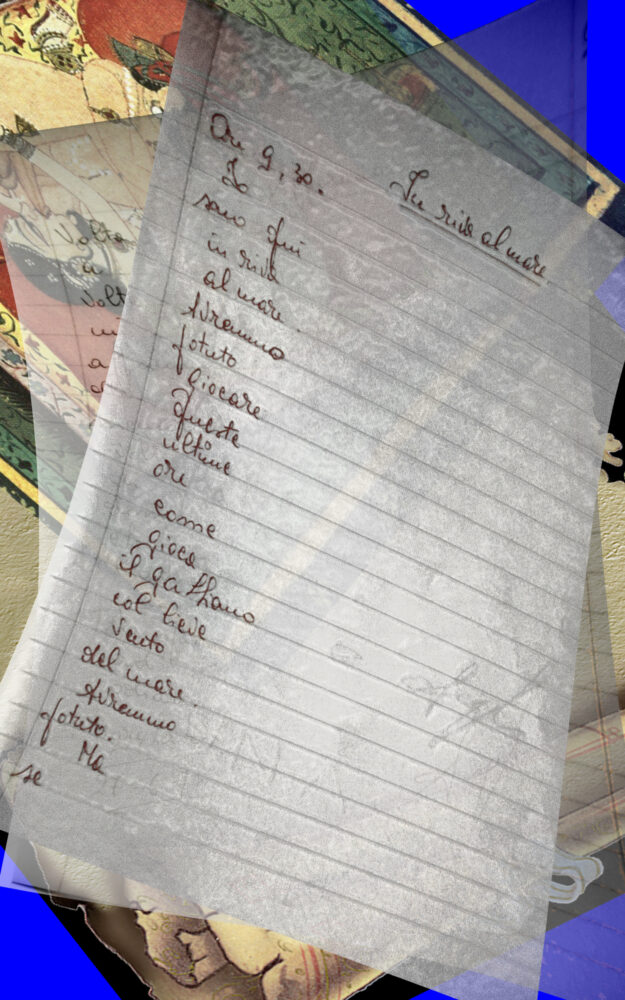 Ore 9,30.
In riva al mare
Io
sono qui
in riva
al mare.
Avremmo
potuto
giocare
queste
ultime
ore
come
gioca
il gabbiano
col lieve
vento
del mare.
Avremmo
potuto.
Ma
se
Volto
volt